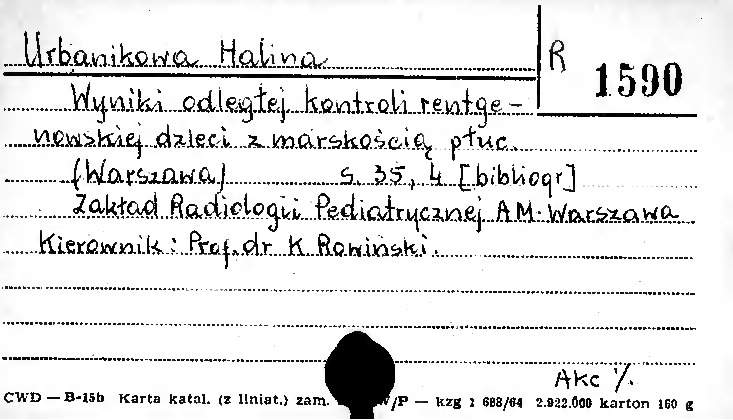 Urbanikowa Halina
R 1590
Wyniki odległej kontroli rentge-
nowskiej dzieci z marskością płuc.
(Warszawa) s. 35, 4 [bibliogr]
Zakład Radiologii Pediatrycznej AM. Warszawa
Kierownik: Prof. dr K. Rowiński.
Akc %.
CWD — B-15b Karta katal. (z liniat.) zam. /P — kzg 1 688/64 2.922.000 karton 160 g